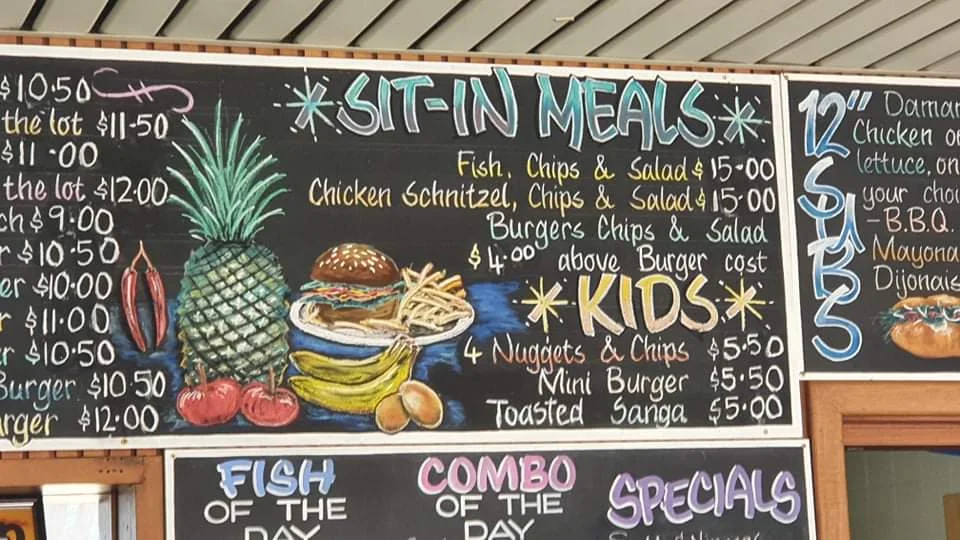 $10.50
the lot $11-50
$11-00
the lot $12.00
$9.00
$10.50
$10.00
$11.00
$10.50
Burger $10.50
$12.00
SIT-IN MEALS
Fish, Chips & Salad $15-00
Chicken Schnitzel, Chips & Salad $15-00
Burgers Chips & Salad
$4.00 above Burger cost
KIDS
4 Nuggets & Chips $5.50
Mini Burger $5.50
Toasted Sanga $5.00
12" SUBS
Chicken
lettuce,
your
-B.B.Q.
FISH
OF THE
DAY
COMBO
OF THE
DAY
SPECIALS